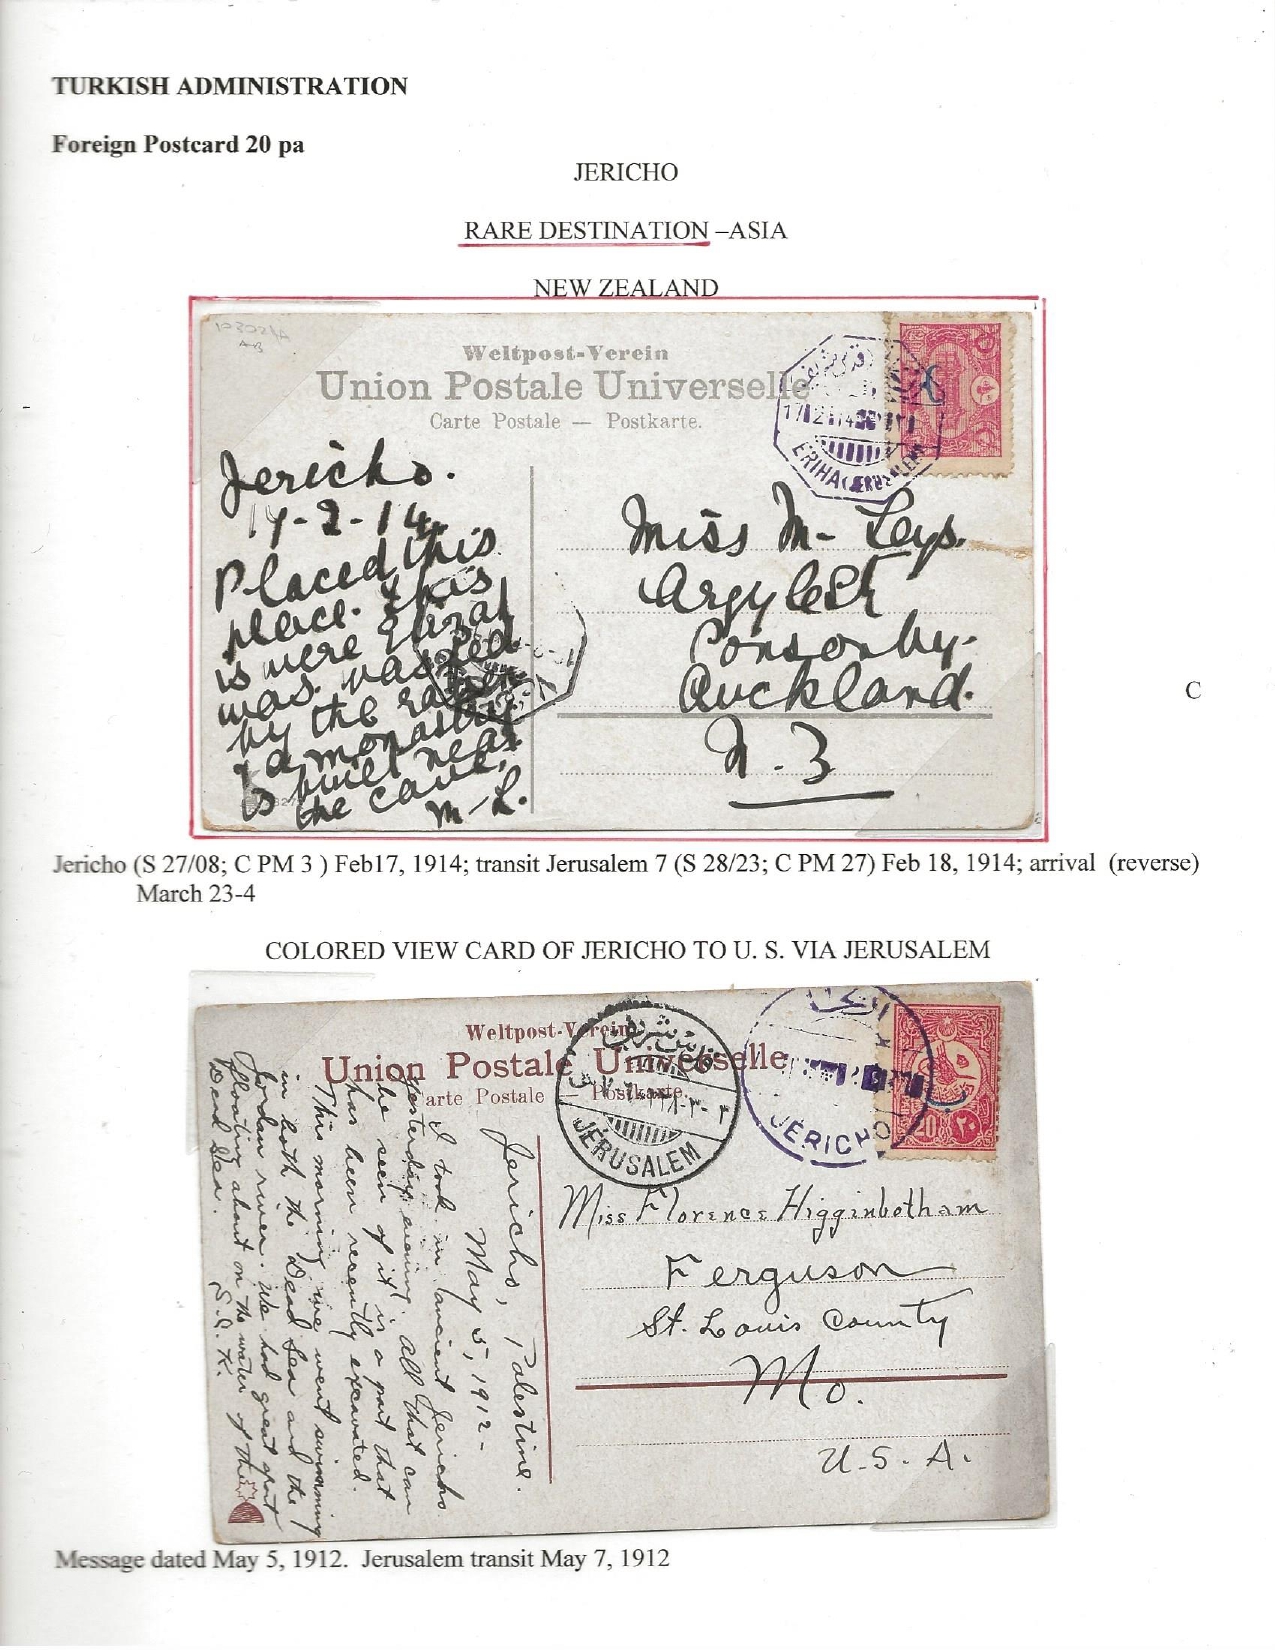 TURKISH ADMINISTRATION
Foreign Postcard 20 pa
JERICHO
RARE DESTINATION –ASIA
NEW ZEALAND
Weltpost-Verein
Union Postale Universelle
Carte Postale — Postkarte.
ERIHA (JERUSALEM)
Jericho.
17-2-14.
Placed this
place. this
is were Elizah
was
by the
a monastery
is built near
the cave,
M-L.
Miss M- Leys.
Argyle St
Ponsonby-
Auckland.
N.Z
C
Jericho (S 27/08; C PM 3 ) Feb17, 1914; transit Jerusalem 7 (S 28/23; C PM 27) Feb 18, 1914; arrival (reverse)
March 23-4
COLORED VIEW CARD OF JERICHO TO U. S. VIA JERUSALEM
Weltpost-Verein
Union Postale Universelle
Carte Postale — Postkarte.
JERUSALEM
JERICHO
20
٢٠
Jericho, Palestine.
May 5, 1912-
I took in ancient Jericho
yesterday evening. All that can
be seen of it is a part that
has been recently excavated.
This morning we went swimming
in both the Dead Sea and the
Jordan river. We had great sport
floating about on the water of the
Dead Sea. S.J.K.
Miss Florence Higginbotham
Ferguson
St. Louis County
Mo.
U.S.A.
Message dated May 5, 1912. Jerusalem transit May 7, 1912